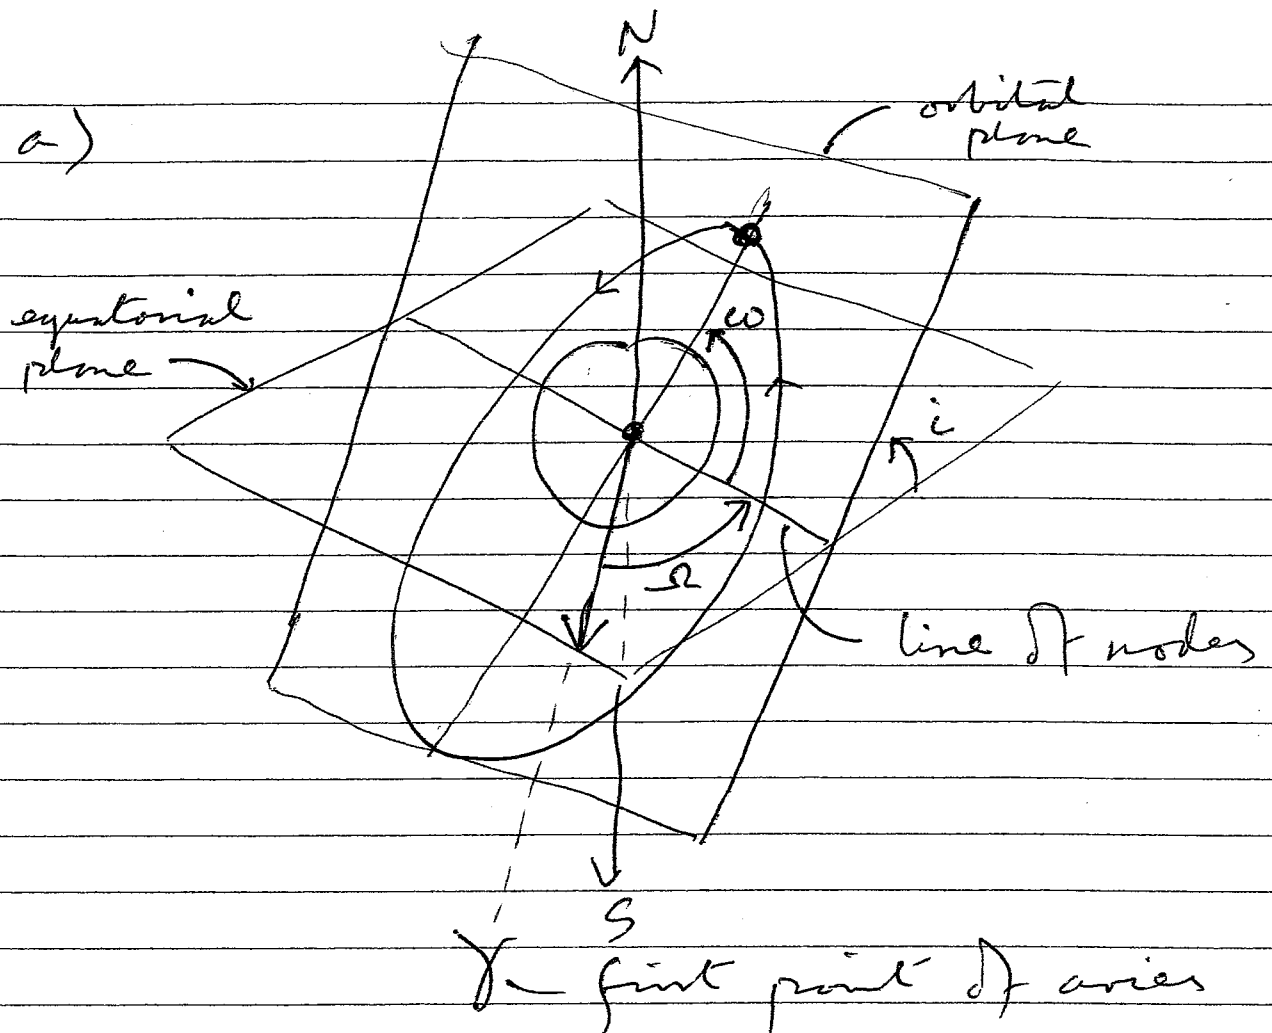 N
a)
orbital
plane
equatorial
plane
ω
i
Ω
line of nodes
S
γ – first point of aries